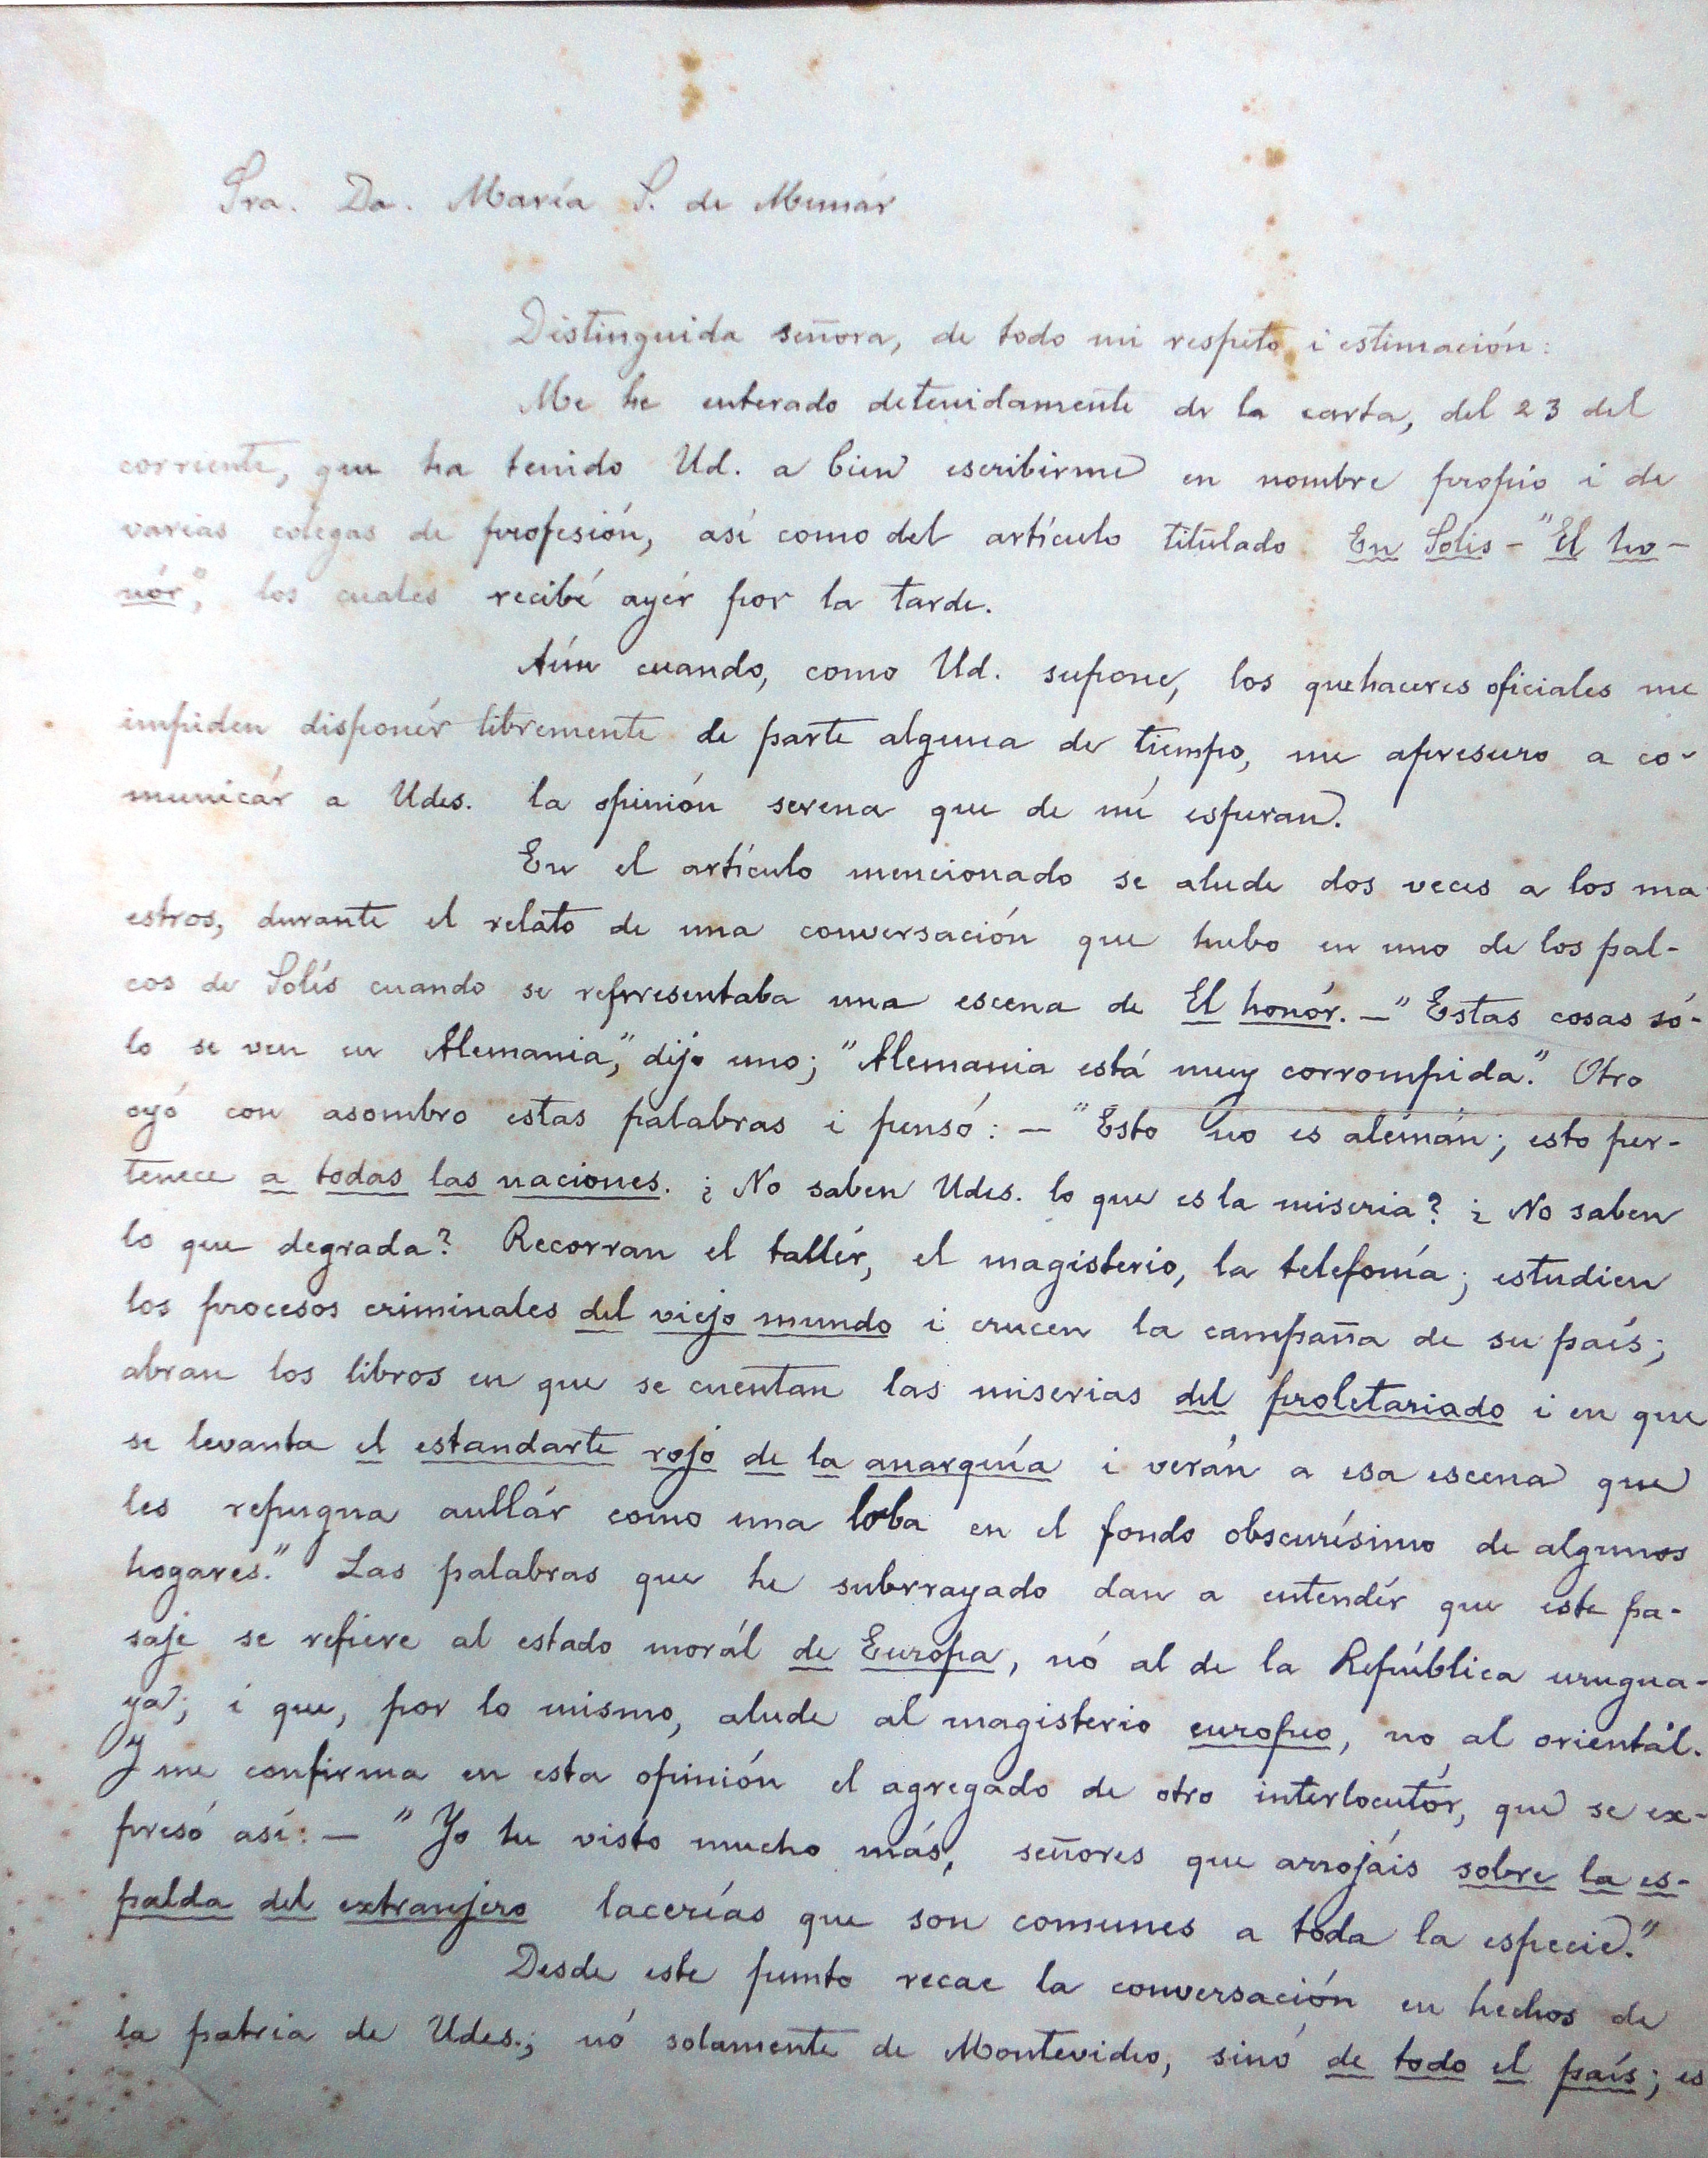 Sra. Da. María S. de Munár
Distinguida señora, de todo mi respeto i estimación:
Me he enterado detenidamente de la carta, del 23 del
corriente, que ha tenido Ud. a bien escribirme en nombre propio i de
varias colegas de profesión, así como del artículo titulado En Solis - "El ho-
nór", los cuales recibí ayér por la tarde.
Aún cuando, como Ud. supone, los quehaceres oficiales me
impiden disponér libremente de parte alguna de tiempo, me apresuro a co-
municár a Udes. la opinión serena que de mí esperan.
En el artículo mencionado se alude dos veces a los ma
estros, durante el relato de una conversación que hubo en uno de los pal-
cos de Solís cuando se representaba una escena de El honór. — "Estas cosas só-
lo se ven en Alemania", dijo uno; "Alemania está muy corrompida." Otro
oyó con asombro estas palabras i pensó: — "Esto no es alemán; esto per-
tenece a todas las naciones. ¿No saben Udes. lo que es la miseria? ¿No saben
lo que degrada? Recorran el tallér, el magisterio, la telefonía; estudien
los procesos criminales del viejo mundo i crucen la campaña de su país;
abran los libros en que se cuentan las miserias del proletariado i en que
se levanta el estandarte rojo de la anarquía i verán a esa escena que
les repugna aullár como una loba en el fondo obscurísimo de algunos
hogares." Las palabras que he subrrayado dan a entendér que este pa-
saje se refiere al estado morál de Europa, nó al de la República urugua-
ya; i que, por lo mismo, alude al magisterio europeo, no al orientál.
Y me confirma en esta opinión el agregado de otro interlocutór, que se ex-
presó así: — "Yo he visto mucho más, señores que arrojáis sobre la es-
palda del extranjero lacerías que son comunes a toda la especie."
Desde este punto recae la conversación en hechos de
la patria de Udes.; nó solamente de Montevideo, sinó de todo el país; es